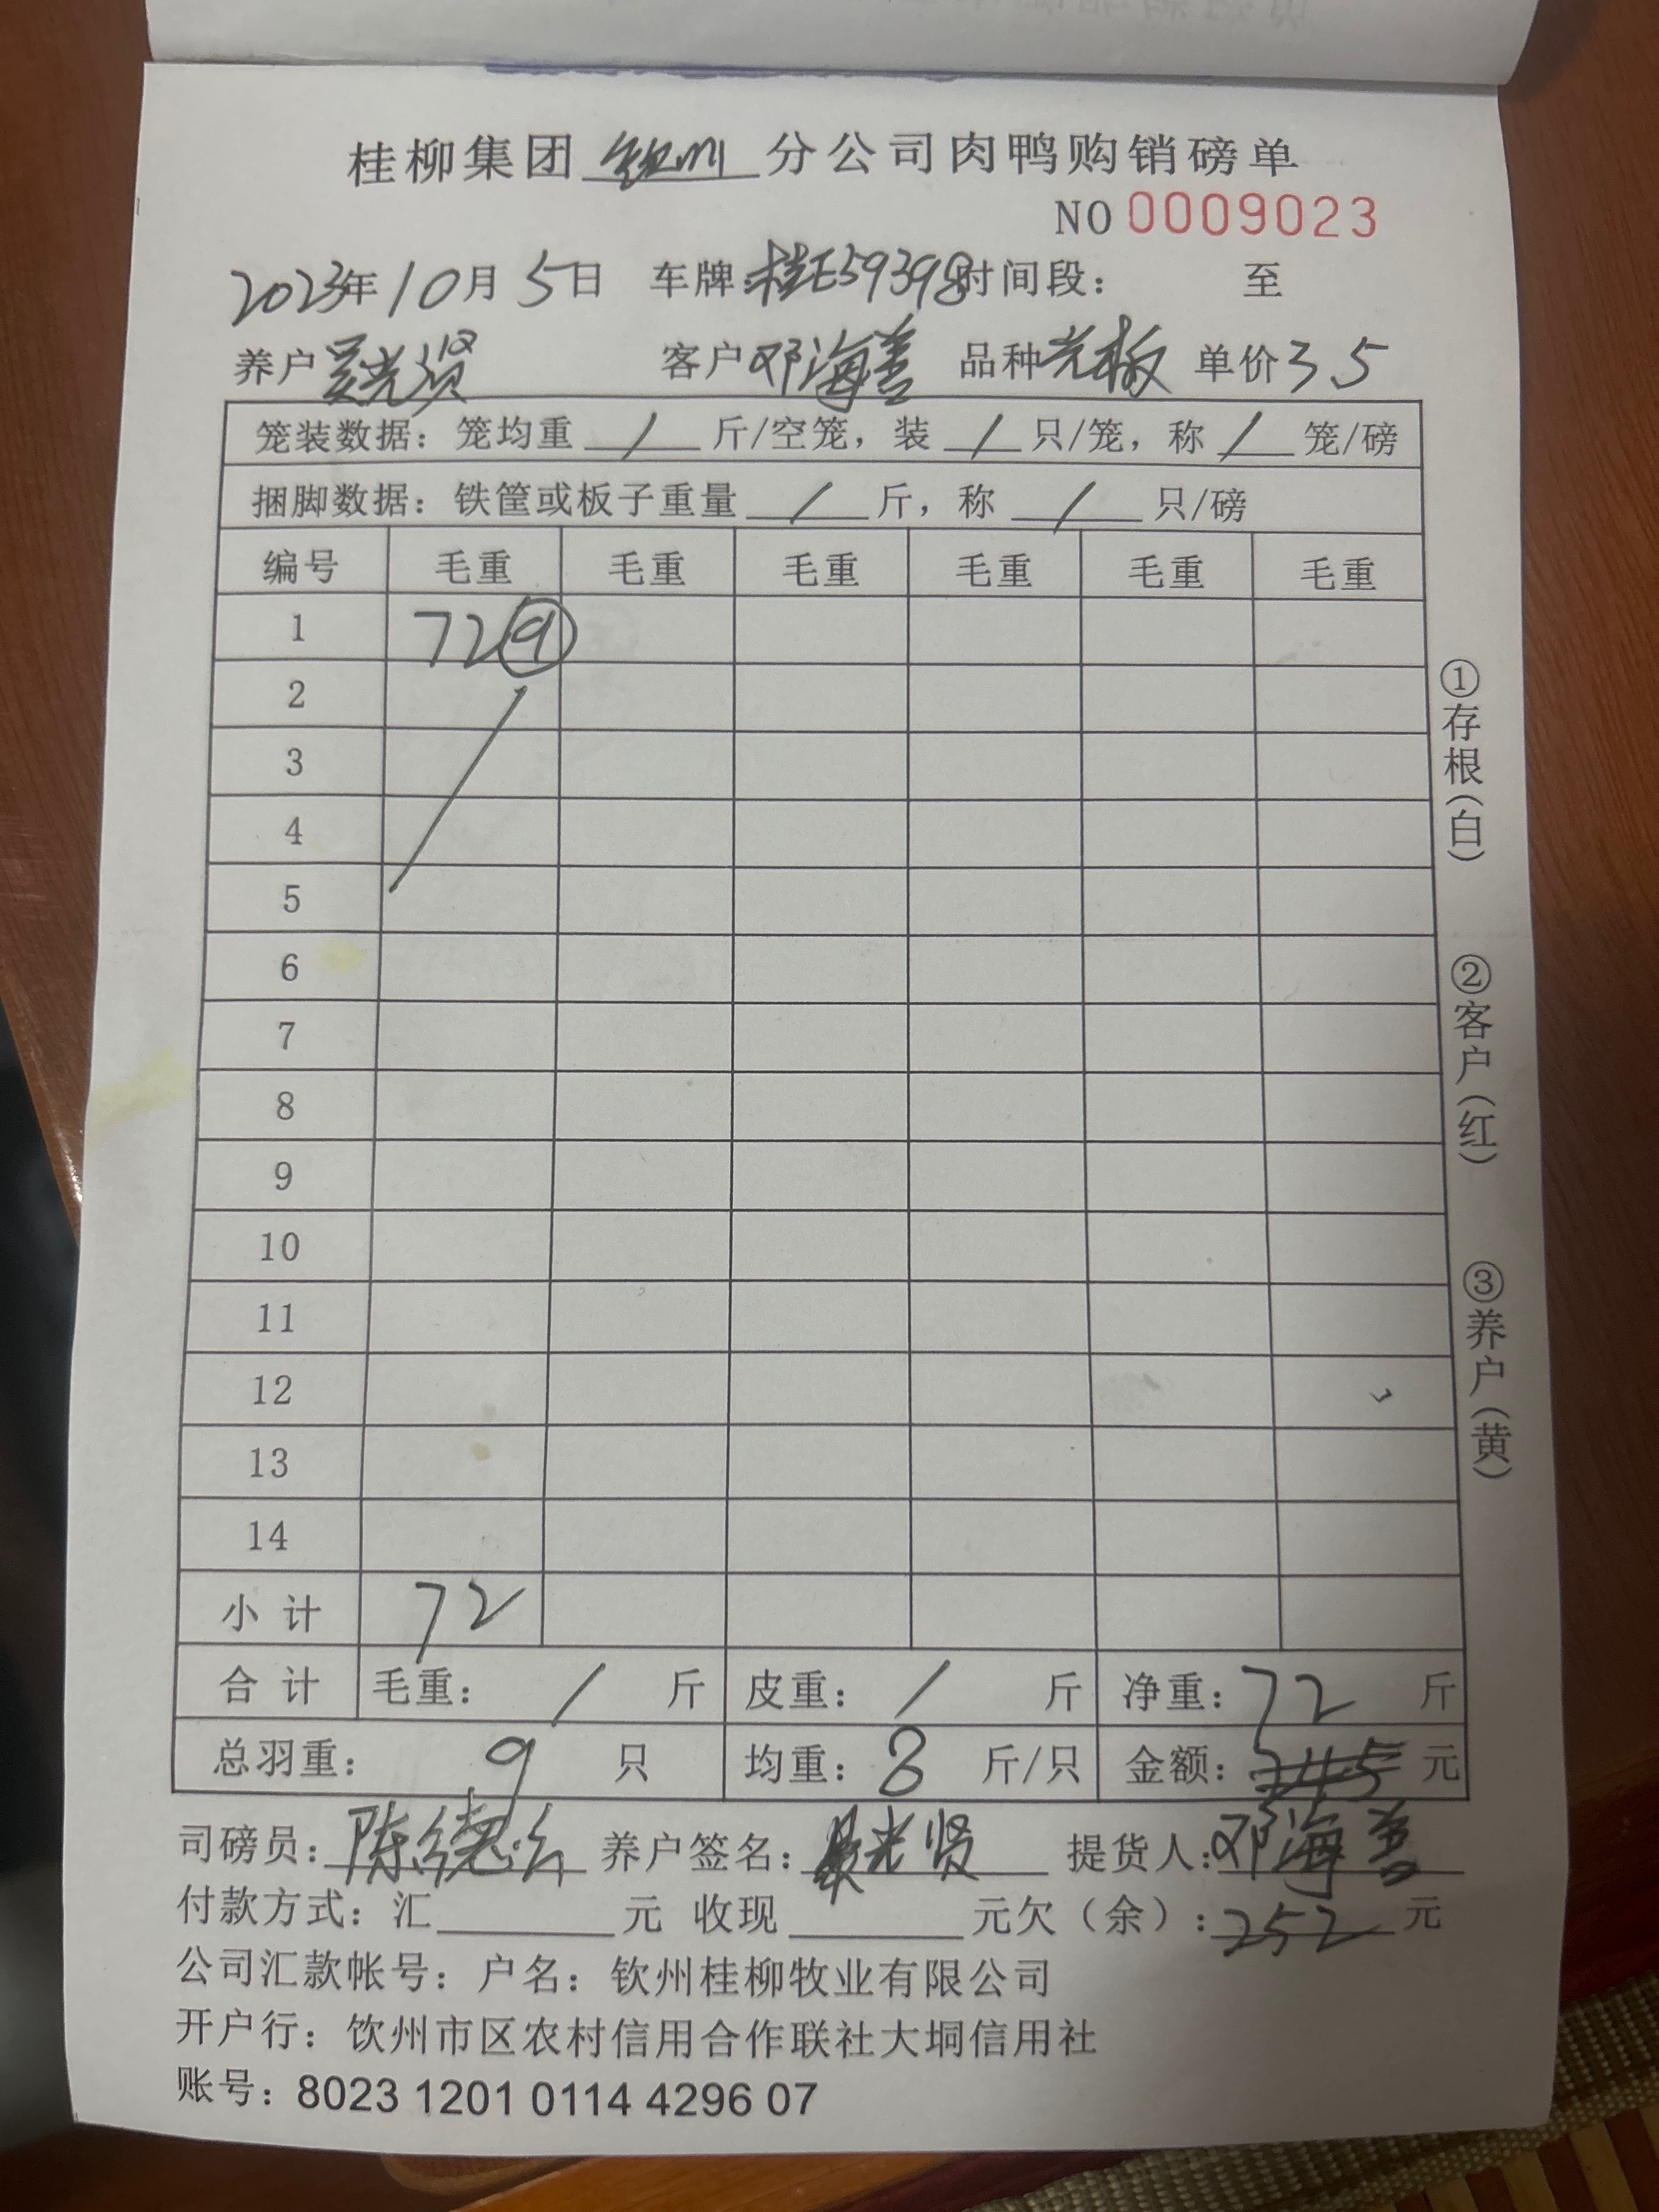 桂柳集团 钦州 分公司肉鸭购销磅单
NO 0009023
2023年10月5日 车牌:桂E59398 时间段: 至
养户 吴光贤 客户 邓海善 品种 光板 单价 3.5
笼装数据:笼均重 / 斤/空笼,装 / 只/笼,称 / 笼/磅
捆脚数据:铁筐或板子重量 / 斤,称 / 只/磅
编号 毛重 毛重 毛重 毛重 毛重 毛重
1 72⑨
2
3
4
5
6
7
8
9
10
11
12
13
14
小计 72
合计 毛重: / 斤 皮重: / 斤 净重:72 斤
总羽重: 9 只 均重:8 斤/只 金额: 元
司磅员:陈德 养户签名:吴光贤 提货人:邓海善
付款方式:汇 元 收现 元欠(余):252 元
公司汇款帐号:户名:钦州桂柳牧业有限公司
开户行:钦州市区农村信用合作联社大垌信用社
账号:8023 1201 0114 4296 07
①存根(白)
②客户(红)
③养户(黄)